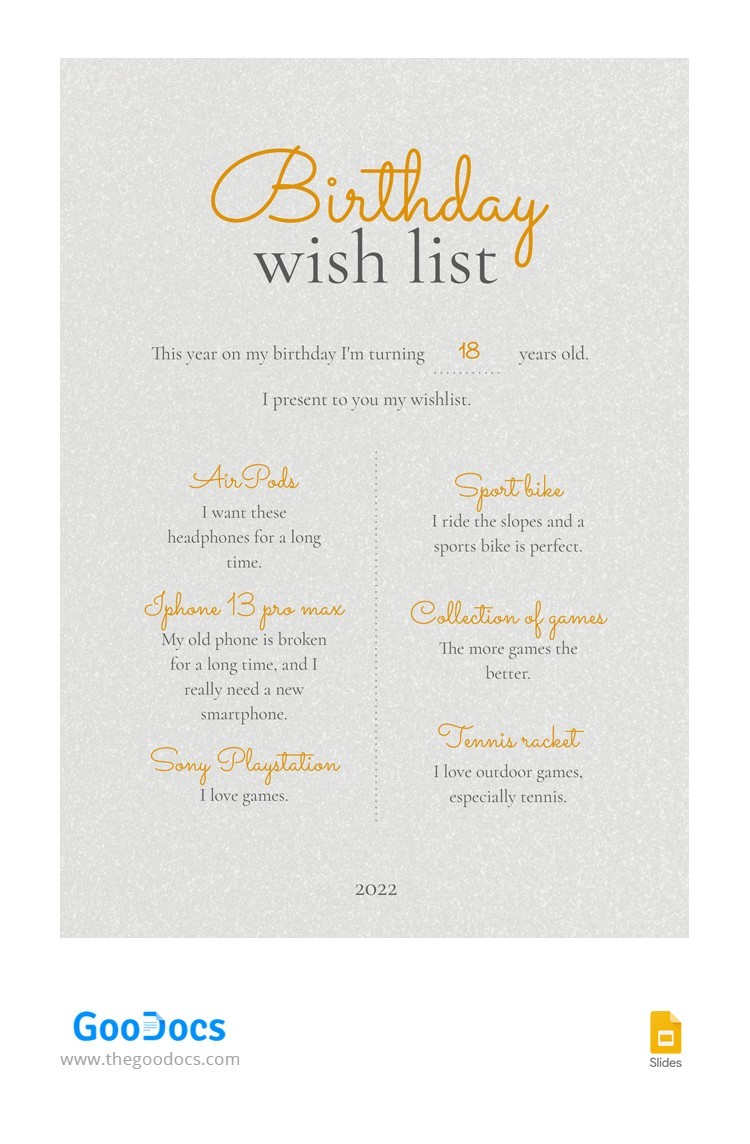 Birthday
wish list
This year on my birthday I'm turning 18 years old.
I present to you my wishlist.
AirPods
I want these
headphones for a long
time.
Iphone 13 pro max
My old phone is broken
for a long time, and I
really need a new
smartphone.
Sony Playstation
I love games.
Sport bike
I ride the slopes and a
sports bike is perfect.
Collection of games
The more games the
better.
Tennis racket
I love outdoor games,
especially tennis.
2022
GooDocs
www.thegoodocs.com
Slides